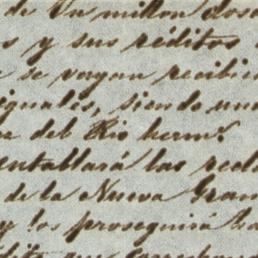 de Un millon dosc
s y sus réditos
se vayan recibie
iguales, siendo una
del Rio herm.
entablará las recla
de la Nueva Gran
y los proseguirá ha